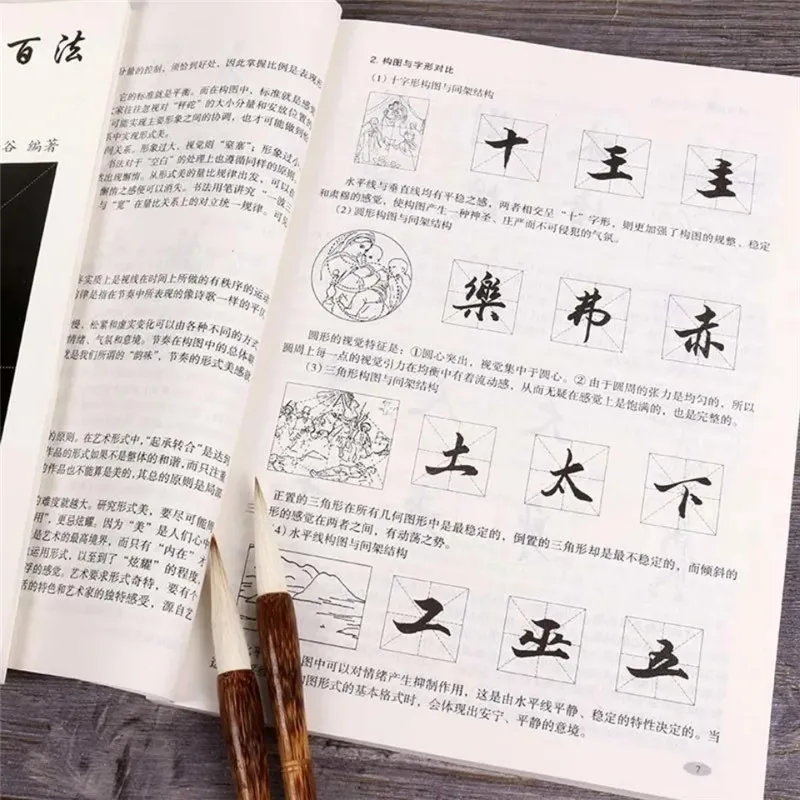 百法
谷 编著
分量的控制,须恰到好处,因此掌握比例是表现形
它的标准就是平衡。而在构图中,标准就是感觉
家往往忽视对“秤砣”的大小分量和安放位置的
可能实现主要形象之间的协调,也才可能做到恰
系中实现形式美。
间关系。形象过大,视觉则“窒塞”;形象过小,
书法对于“空白”的处理上也遵循同样的原则。
然出现懈惰。从形式美的量比规律出发,可以在
懈惰之感便可以消失。书法用笔讲究“一波三
与“宽”在量比关系上的对立统一规律。可见
奏实质上是视线在时间上所做的有秩序的运动
的律是指在节奏中所表现的像诗歌一样的平仄
慢、松紧和虚实变化可以由各种不同的方式
情绪、气氛和意境。节奏在构图中的总体
就是我们所谓的“韵味”,节奏的形式美感
的原则。在艺术形式中,“起承转合”是达到
作品的形式如果不是整体的和谐,而只注重
的作品也不能算是美的,其总的原则是局部
的难度就越大。研究形式美,要尽可能
用”,更忌炫耀。因为“美”是人们心中
是艺术的最高境界,而只有“内在”才
运用形式,以至到了“炫耀”的程度,
浮的感觉。艺术要求形式奇特,要有个
活的特色和艺术家的独特感受,源自艺
2. 构图与字形对比
(1)十字形构图与间架结构
十 王 主
水平线与垂直线均有平稳之感,两者相交呈“十”字形,则更加强了构图的规整、稳定
和肃穆的感觉,使构图产生一种神圣、庄严而不可侵犯的气氛。
(2)圆形构图与间架结构
樂 弗 赤
圆形的视觉特征是:①圆心突出,视觉集中于圆心。②由于圆周的张力是均匀的,所以
圆周上每一点的视觉引力在均衡中有着流动感,从而无疑在感觉上是饱满的,也是完整的。
(3)三角形构图与间架结构
土 太 下
正置的三角形在所有几何图形中是最稳定的,倒置的三角形却是最不稳定的,而倾斜的
三角形的感觉在两者之间,有动荡之势。
(4)水平线构图与间架结构
工 巫 五
图中可以对情绪产生抑制作用,这是由水平线平静、稳定的特性决定的。当
构图形式的基本格式时,会体现出安宁、平静的意境。
7